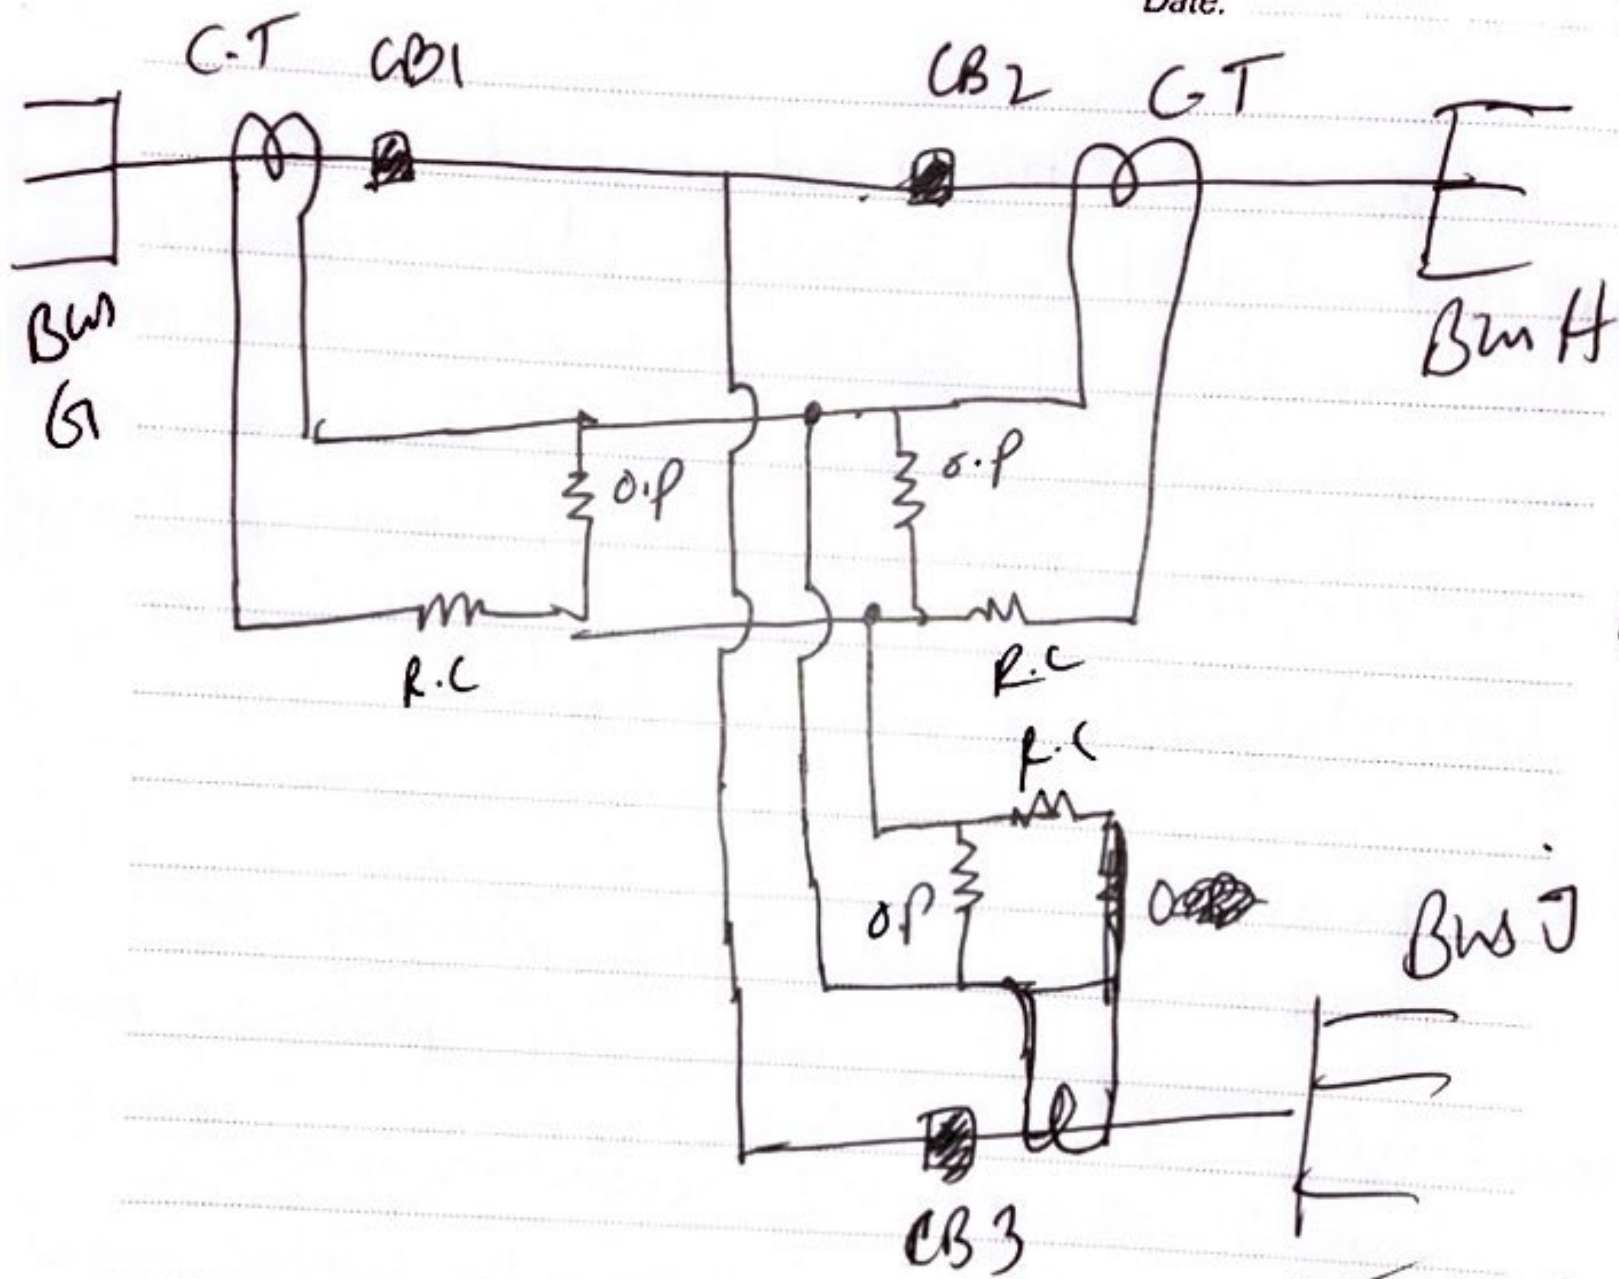 Date:
C.T CB1 CB2 C.T
Bus G
Bus H
O.P O.P
R.C R.C
R.C
O.P
Bus J
CB3